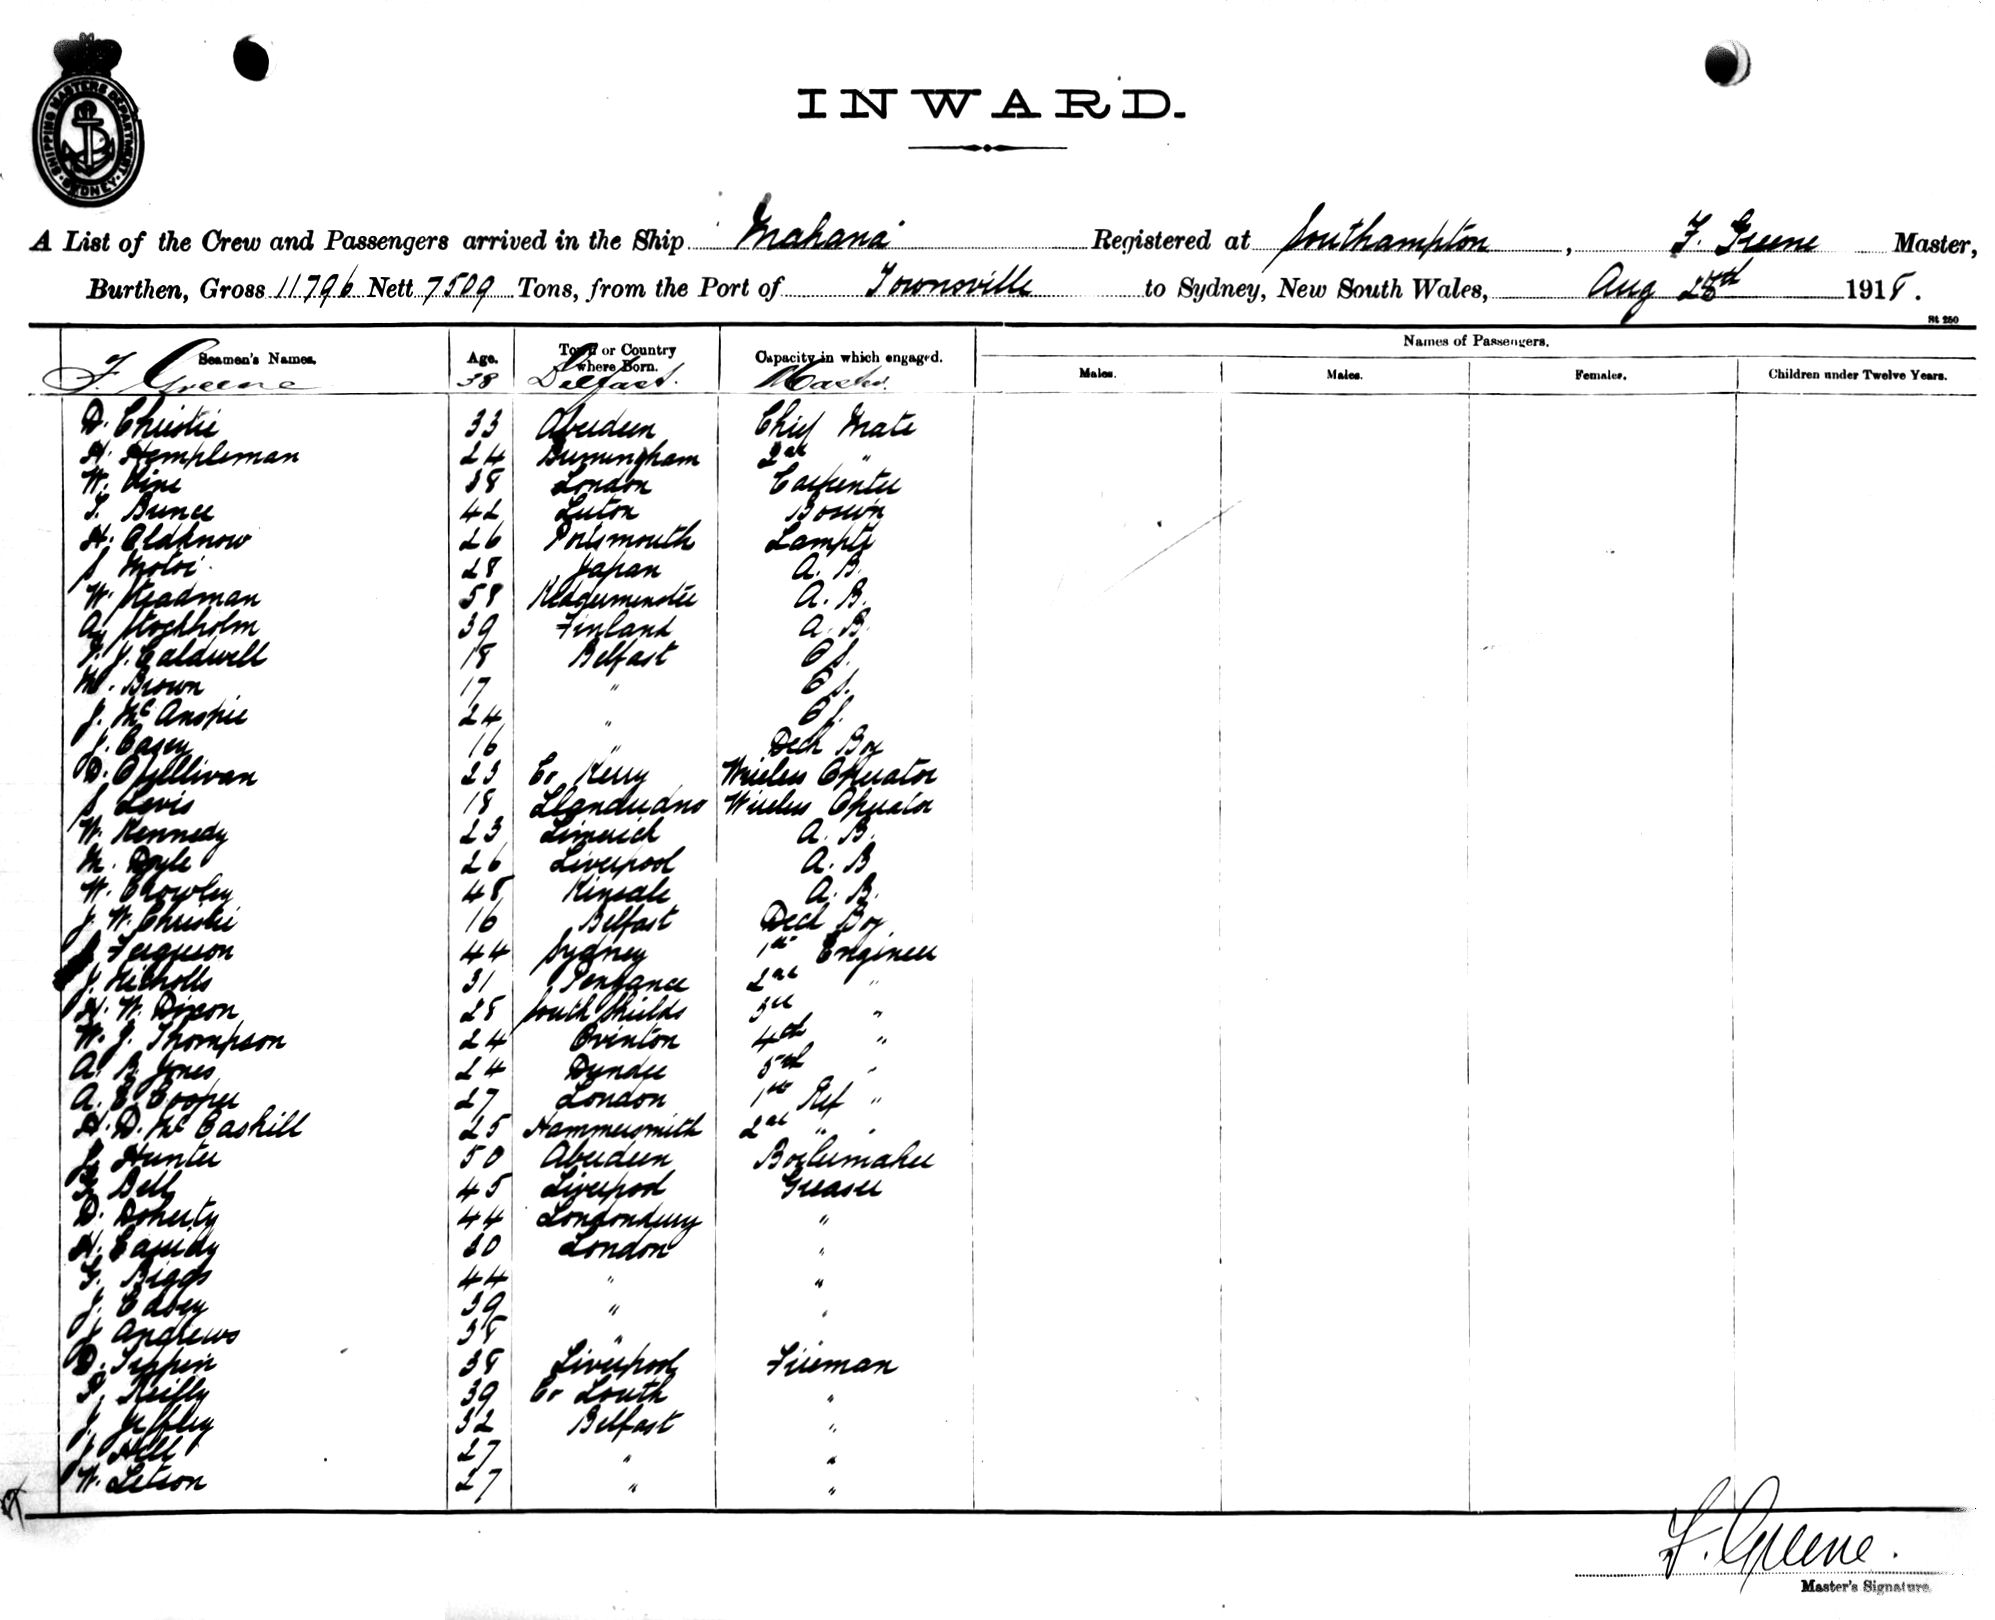 SHIPPING MASTERS DEPARTMENT · SYDNEY ·
INWARD.
A List of the Crew and Passengers arrived in the Ship Mahana Registered at Southampton, F. Greene Master,
Burthen, Gross 11796 Nett 7509 Tons, from the Port of Townsville to Sydney, New South Wales, Aug 1918.
St 250
Seamen's Names. Age. Town or Country where Born. Capacity in which engaged. Names of Passengers.
Males. Males. Females. Children under Twelve Years.
F. Greene 38 Belfast. Master
D. Christie 33 Aberdeen Chief Mate
H. Hempleman 24 Birmingham 2nd "
W. Vine 38 London Carpenter
Bunce 42 Luton Bosun
H. Oldknow 26 Portsmouth Lamptr
S. Motoi 28 Japan A. B.
W. Steadman 58 A. B.
A. Stockholm 39 Finland A. B.
J. Caldwell 18 Belfast O S.
M. Brown 17 " O S.
J. McAnspie 24 " O S.
J. Casey 16 " Deck Boy
D. O'Sullivan 23 Co Kerry Wireless Operator
S. Levis 18 Llandudno Wireless Operator
W. Kennedy 23 Limerick A. B.
M. Doyle 26 Liverpool A. B
W. Crowley 48 Kinsale A. B.
J. W. Christie 16 Belfast Deck Boy
J. Ferguson 44 Sydney 1st Engineer
J. Nicholls 31 Penzance 2nd "
H. W. Dixon 28 South Shields 3rd "
W. J. Thompson 24 Ovinton 4th "
A. B. Jones 24 Dundee 5th "
A. E. Cooper 27 London 1st Ref "
H. D. McCaskill 25 Hammersmith 2nd " "
J. Hunter 50 Aberdeen Boilermaker
Bell 45 Liverpool Greaser
D. Doherty 44 Londonderry "
H. Cassidy 30 London "
G. Biggs 44 " "
J. Casey 39 " "
J. Andrews 38 "
D. Tippin 38 Liverpool Fireman
P. Reilly 39 Co Louth "
J. Jeffley 32 Belfast "
J. Hill 27 " "
W. Letson 27 " "
F. Greene.
Master's Signature.